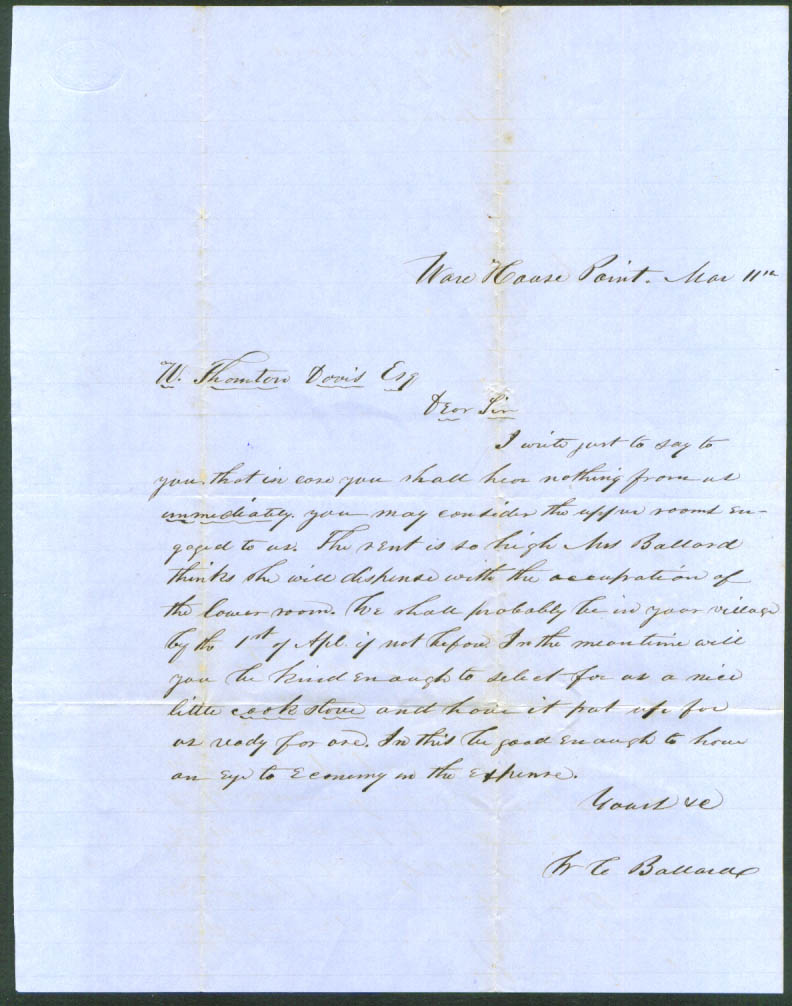 Ware House Point. Mar 11th
W. Thornton Davis Esq
Dear Sir
I write just to say to
you that in case you shall hear nothing from us
immediately you may consider the upper rooms en-
gaged to us. The rent is so high Mrs Ballard
thinks she will dispense with the occupation of
the lower room. We shall probably be in your village
by the 1st of Apl. if not before. In the meantime will
you be kind enough to select for us a nice
little cook stove and have it put up for
us ready for use. In this be good enough to have
an Eye to Economy in the Expense.
Yours &c
W C Ballard